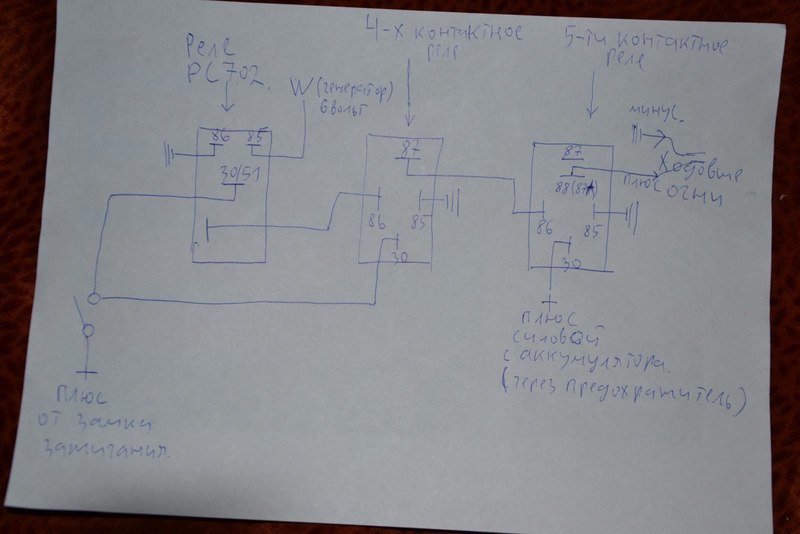 Реле
РС 702.
W (генератор)
6 вольт
4-х контактное
реле
5-ти контактное
реле
минус.
плюс
Ходовые
огни
86 85
30/51
87
86 85
30
87
88(87A)
86 85
30
плюс
от замка
зажигания.
плюс
силовой
с аккумулятора.
(через предохранитель)